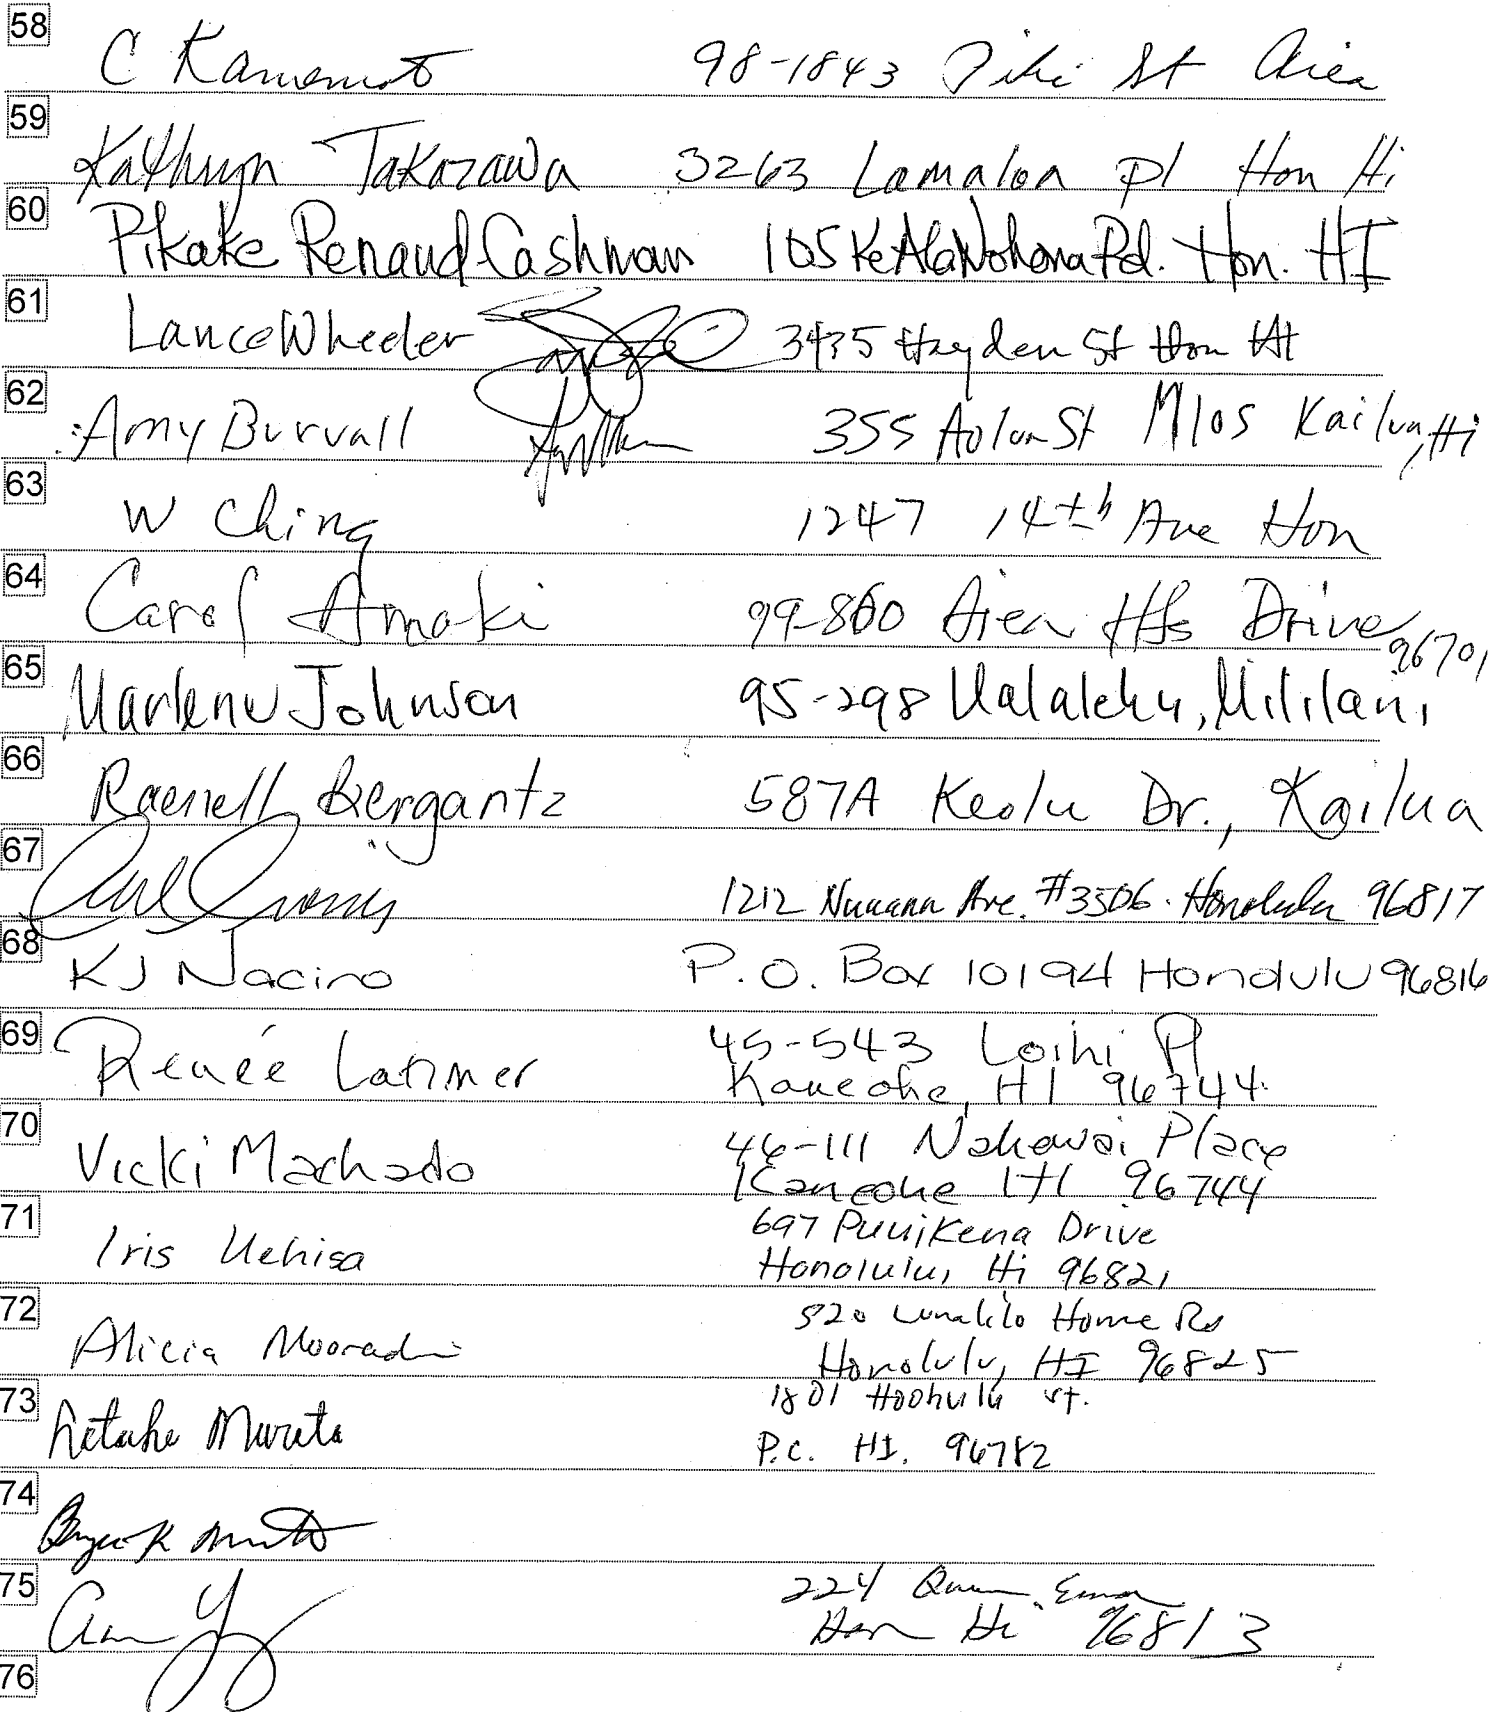 58
C Kanemoto 98-1843 Piki St Aiea
59
Kathryn Takazawa 3263 Lamaloa Pl Hon Hi
60
Pikake Renaud Cashman 105 Ke Ala Nohona Rd. Hon. HI
61
Lance Wheeler 3435 Hayden St Hon HI
62
Amy Burvall 355 Aolon St M105 Kailua, Hi
63
W Ching 1247 14th Ave Hon
64
Carol Amaki 99-860 Aiea Hts Drive
96701
65
Marlene Johnson 95-298 Mililani
66
Raenell Bergantz 587A Keolu Dr., Kailua
67
1212 Nuuanu Ave. #3506. Honolulu 96817
68
KJ Nacino P.O. Box 10194 Honolulu 96816
69
Renée Latimer 45-543 Loihi Pl
Kaneohe, HI 96744
70
Vicki Machado 46-111 Nahewai Place
Kaneohe HI 96744
71
Iris Uehisa 697 Puuikena Drive
Honolulu, Hi 96821
72
Alicia 520 Lunalilo Home Rd
Honolulu, HI 96825
73
Murata 1801 Hoohulu st.
P.C. HI. 96782
74
75
224 Queen Emma
Hon Hi 96813
76